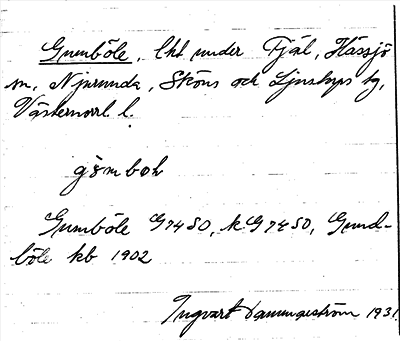 Gumböle, lht under Fjäl, Hässjö
sn, Njurunda, Sköns och Ljustorps tg,
Västernorrl. l.
Gumböle G7480, kG7480, Gund-
böle kb 1902
Ingvart Dannqueström 1931